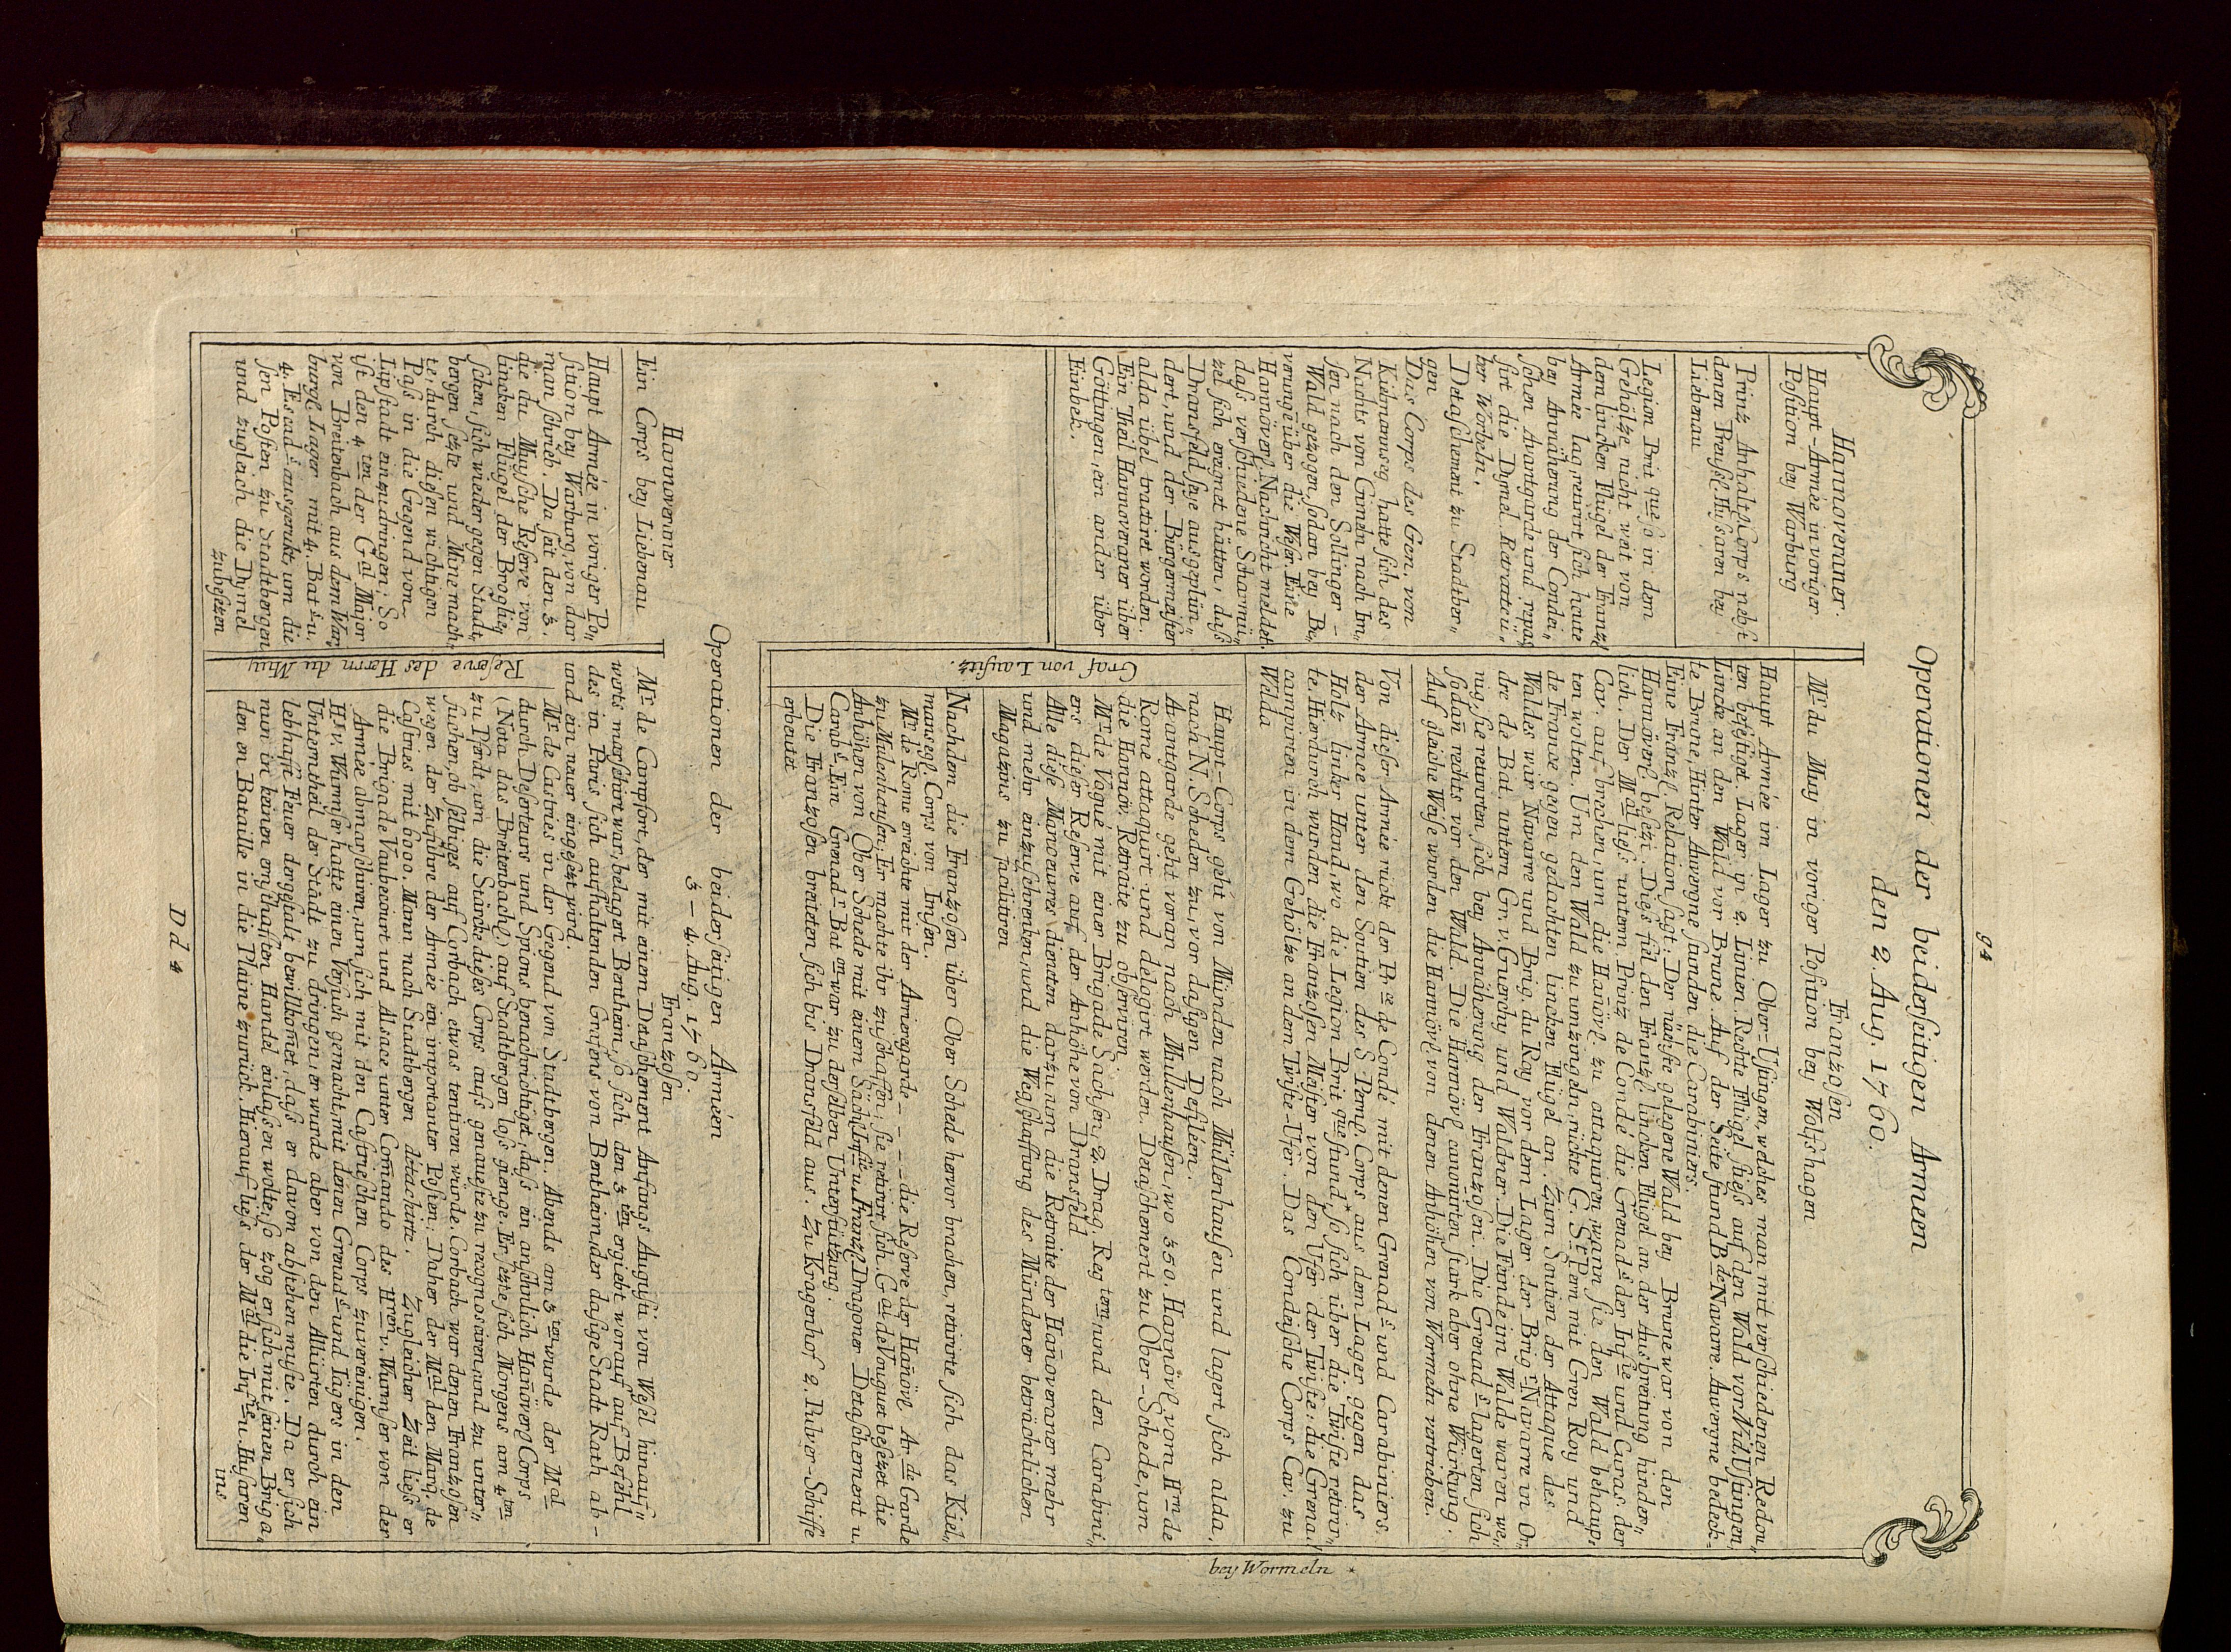 94
Operationen der beiderseitigen Armeen
den 2. Aug. 1760.
Hannoveraner
Haupt-Armée in voriger
Position bey Warburg
Prinz Anhalts Corps nebst
denen Preussl. Husaren bey
Liebenau
Legion Brit que so in dem
Gehölze nicht weit von
dem lincken Flügel der Franzl
Armée lag, retirirt sich heute
bey Annäherung der Condei„
schen Avantgarde und repas„
sirt die Dymel. Retraite ü„
ber Worbeln.
Detaschement zu Stadtber„
gen
Das Corps des Gen. von
Kielmanseg hatte sich des
Nachts von Gimeln nach Im„
sen nach den Sollinger-
Wald gezogen, sodan bey Be„
verungen über die Weser. Eine
Hannöverl. Nachricht meldet
daß verschiedene Scharmü„
zel sich eräignet hätten, daß
Dransfeld seye ausgeplün„
dert, und der Bürgermeister
alda übel tractirt worden.
Ein Theil Hannoveraner über
Göttingen, ein ander über
Einbek.
Franzosen
Mr. du Muy in voriger Position bey Wolfshagen
Haupt Armée im Lager zu Ober=Ufsingen, welches man mit verschiedenen Redou„
ten befestiget. Lager in 2. Linien. Rechte Flügel stiess auf den Wald vor Nid. Ufsingen,
Lincke an den Wald vor Brune. Auf der Seite stund Bde Navarre. Auvergne bedeck=
te Brune, Hinter Auvergne stunden die Carabiniers.
Eine Fränzl. Relation sagt: Der nächste gelegene Wald bey Brune war von den
Hannöverl. besezt. Dies fiel den Franzl lincken Flügel an der Ausbreitung hinder„
lich. Der Mal lies unterm Prinz de Condé die Grenads der Infie und Curas. der
Cav. auf brechen, um die Hanövl. zu attaquiren, wann sie den Wald behaup„
ten wolten. Um den Wald zu umzingeln, rückte G. St Pern mit Gren Roy und
de France gegen gedachten lincken Flügel an. Zum Soutien der Attaque des
Waldes war Navarre und Brig. du Roy vor dem Lager der Brigs Navarre in Or„
dre de Bat. unterm Gr. v. Guerchy und Waldner. Die Feinde im Walde waren we„
nig, sie retirirten sich bey Annäherung der Franzosen. Die Grenads lagerten sich
sodan rechts vor den Wald. Die Hannövl. canonirten stark aber ohne Würkung.
Auf gleiche Weise wurden die Hannövl. von denen Anhöhen von Wormeln vertrieben.
Von dieser Armée rückt der Pr ce de Condé mit denen Grenad s und Carabiniers
der Armee unter den Soutien des S. Pernj. Corps aus dem Lager gegen das
Holz linker Hand, wo die Legion Brit que stund,* so sich über die Twiste retirir„
te. Hierdurch wurden die Franzosen Meister von den Ufer der Twiste: die Grenad
campiren in dem Gehölze an dem Twiste-Ufer. Das Condäische Corps Cav. zu
Welda
* bey Wormeln
Graf von Lausitz.
Haupt-Corps geht von Münden nach Mullenhausen und lagert sich alda,
nach N. Scheden zu, vor dasigen Defiléen.
Avantgarde geht voran nach Mullenhausen, wo 350. Hannövl. vom Hrn de
Rome attaquirt und delogirt werden. Detaschement zu Ober-Schede, um
die Hannöv. Retraite zu observiren
Mr. de Vogue mit einer Brigade Sachsen, 2. Drag. Reg tern und den Carabini„
ers dieser Reserve auf der Anhöhe von Dransfeld
Alle diese Manoeuvres dienten darzu um die Retraite der Hanoveraner mehr
und mehr anzuschrenken, und die Wegschaffung des Mündener beträchtlichen
Magazins zu facilitiren
Nachdem die Franzosen über Ober Schede hervor brachen, retirirte sich das Kiel„
mansegl. Corps von Imsen.
Mr. de Rome erreichte mit der Arriergarde - - - - die Reserve der Hanövl. Ar. de Garde
zu Mulenhausen. Er machte ihr zu schaffen, sie retirirt sich. Gal de Vouguet besezet die
Anhöhen von Ober Schede mit einem Sächs. Infu. Franzl Dragoner Detaschement u.
Carabs. Ein Grenads Bat on war zu derselben Unterstützung.
Die Franzosen breiteten sich bis Dransfeld aus. Zu Krogenhof 2. Pulver-Schiffe
erbeutet
Operationen der beiderseitigen Arméen
3 - 4. Aug. 1760.
Hannoveraner
Ein Corps bey Liebenau
Haupt Armée in voriger Po„
sition bey Warburg, von dar
man schrieb. Da seit den 3.
die du Muysche Reserve von
lincken Flügel der Broglie„
schen, sich wieder gegen Stadt„
bergen sezte und Mine mach„
te, durch diesen wichtigen
Pass in die Gegend von
Lipstadt einzudringen; So
ist den 4ten der Gal Major
von Breitenbach aus dem War„
burgl. Lager mit 4. Bats u.
4. Escads ausgerükt, um die
sen Posten zu Stadtbergen
und zugleich die Dymel
zubesetzen
Franzosen
Mr de Camfort, der mit einem Detaschement Anfangs Augusti von Wesel hinauf„
werts marschirt war, belagert Bentheim, so sich den 3ten ergiebt worauf auf Befehl
des in Paris sich aufhaltenden Grafens von Bentheim, der dasige Stadt Rath ab-
und ein neuer eingesezt wird.
Reserve des Herrn du Muy
Mr de Castries in der Gegend von Stadtbergen. Abends am 3ten wurde der Mal
durch Deserteurs und Spions benachrichtiget, dass ein ansehnlich Hanöverl Corps
(Nota das Breitenbachl.) auf Stadtbergen loss gienge. Er sezte sich Morgens am 4ten
zu Pferdt, um die Stärcke dieses Corps aufs genaueste zu recognosciren, und zu unter„
suchen, ob selbiges auf Corbach etwas tentiren würde. Corbach war denen Franzosen
wegen der Zufuhre der Armée ein importanter Posten; Daher der Mal den Marq. de
Castries mit 6000. Mann nach Stadtbergen detachirte. Zugleicher Zeit liess er
die Brigade Vaubecourt und Alsace unter Comando des Hren v. Wurmser von der
Armée abmarschiren, um sich mit den Castrieschen Corps zu vereinigen.
Hr v. Wurmser hatte einen Versuch gemacht, mit denen Grenads und Jägers in den
Unterntheil der Stadt zu dringen, er wurde aber von den Alliirten durch ein
lebhafft Feuer dergestalt bewillkomet, dass er davon abstehen muste. Da er sich
nun in keinen ernsthaften Handel einlassen wolte, so zog er sich mit seinen Briga„
den en Bataille in die Plaine zurück. Hierauf liess der Mal die Infie u. Husaren
ins
D d 4